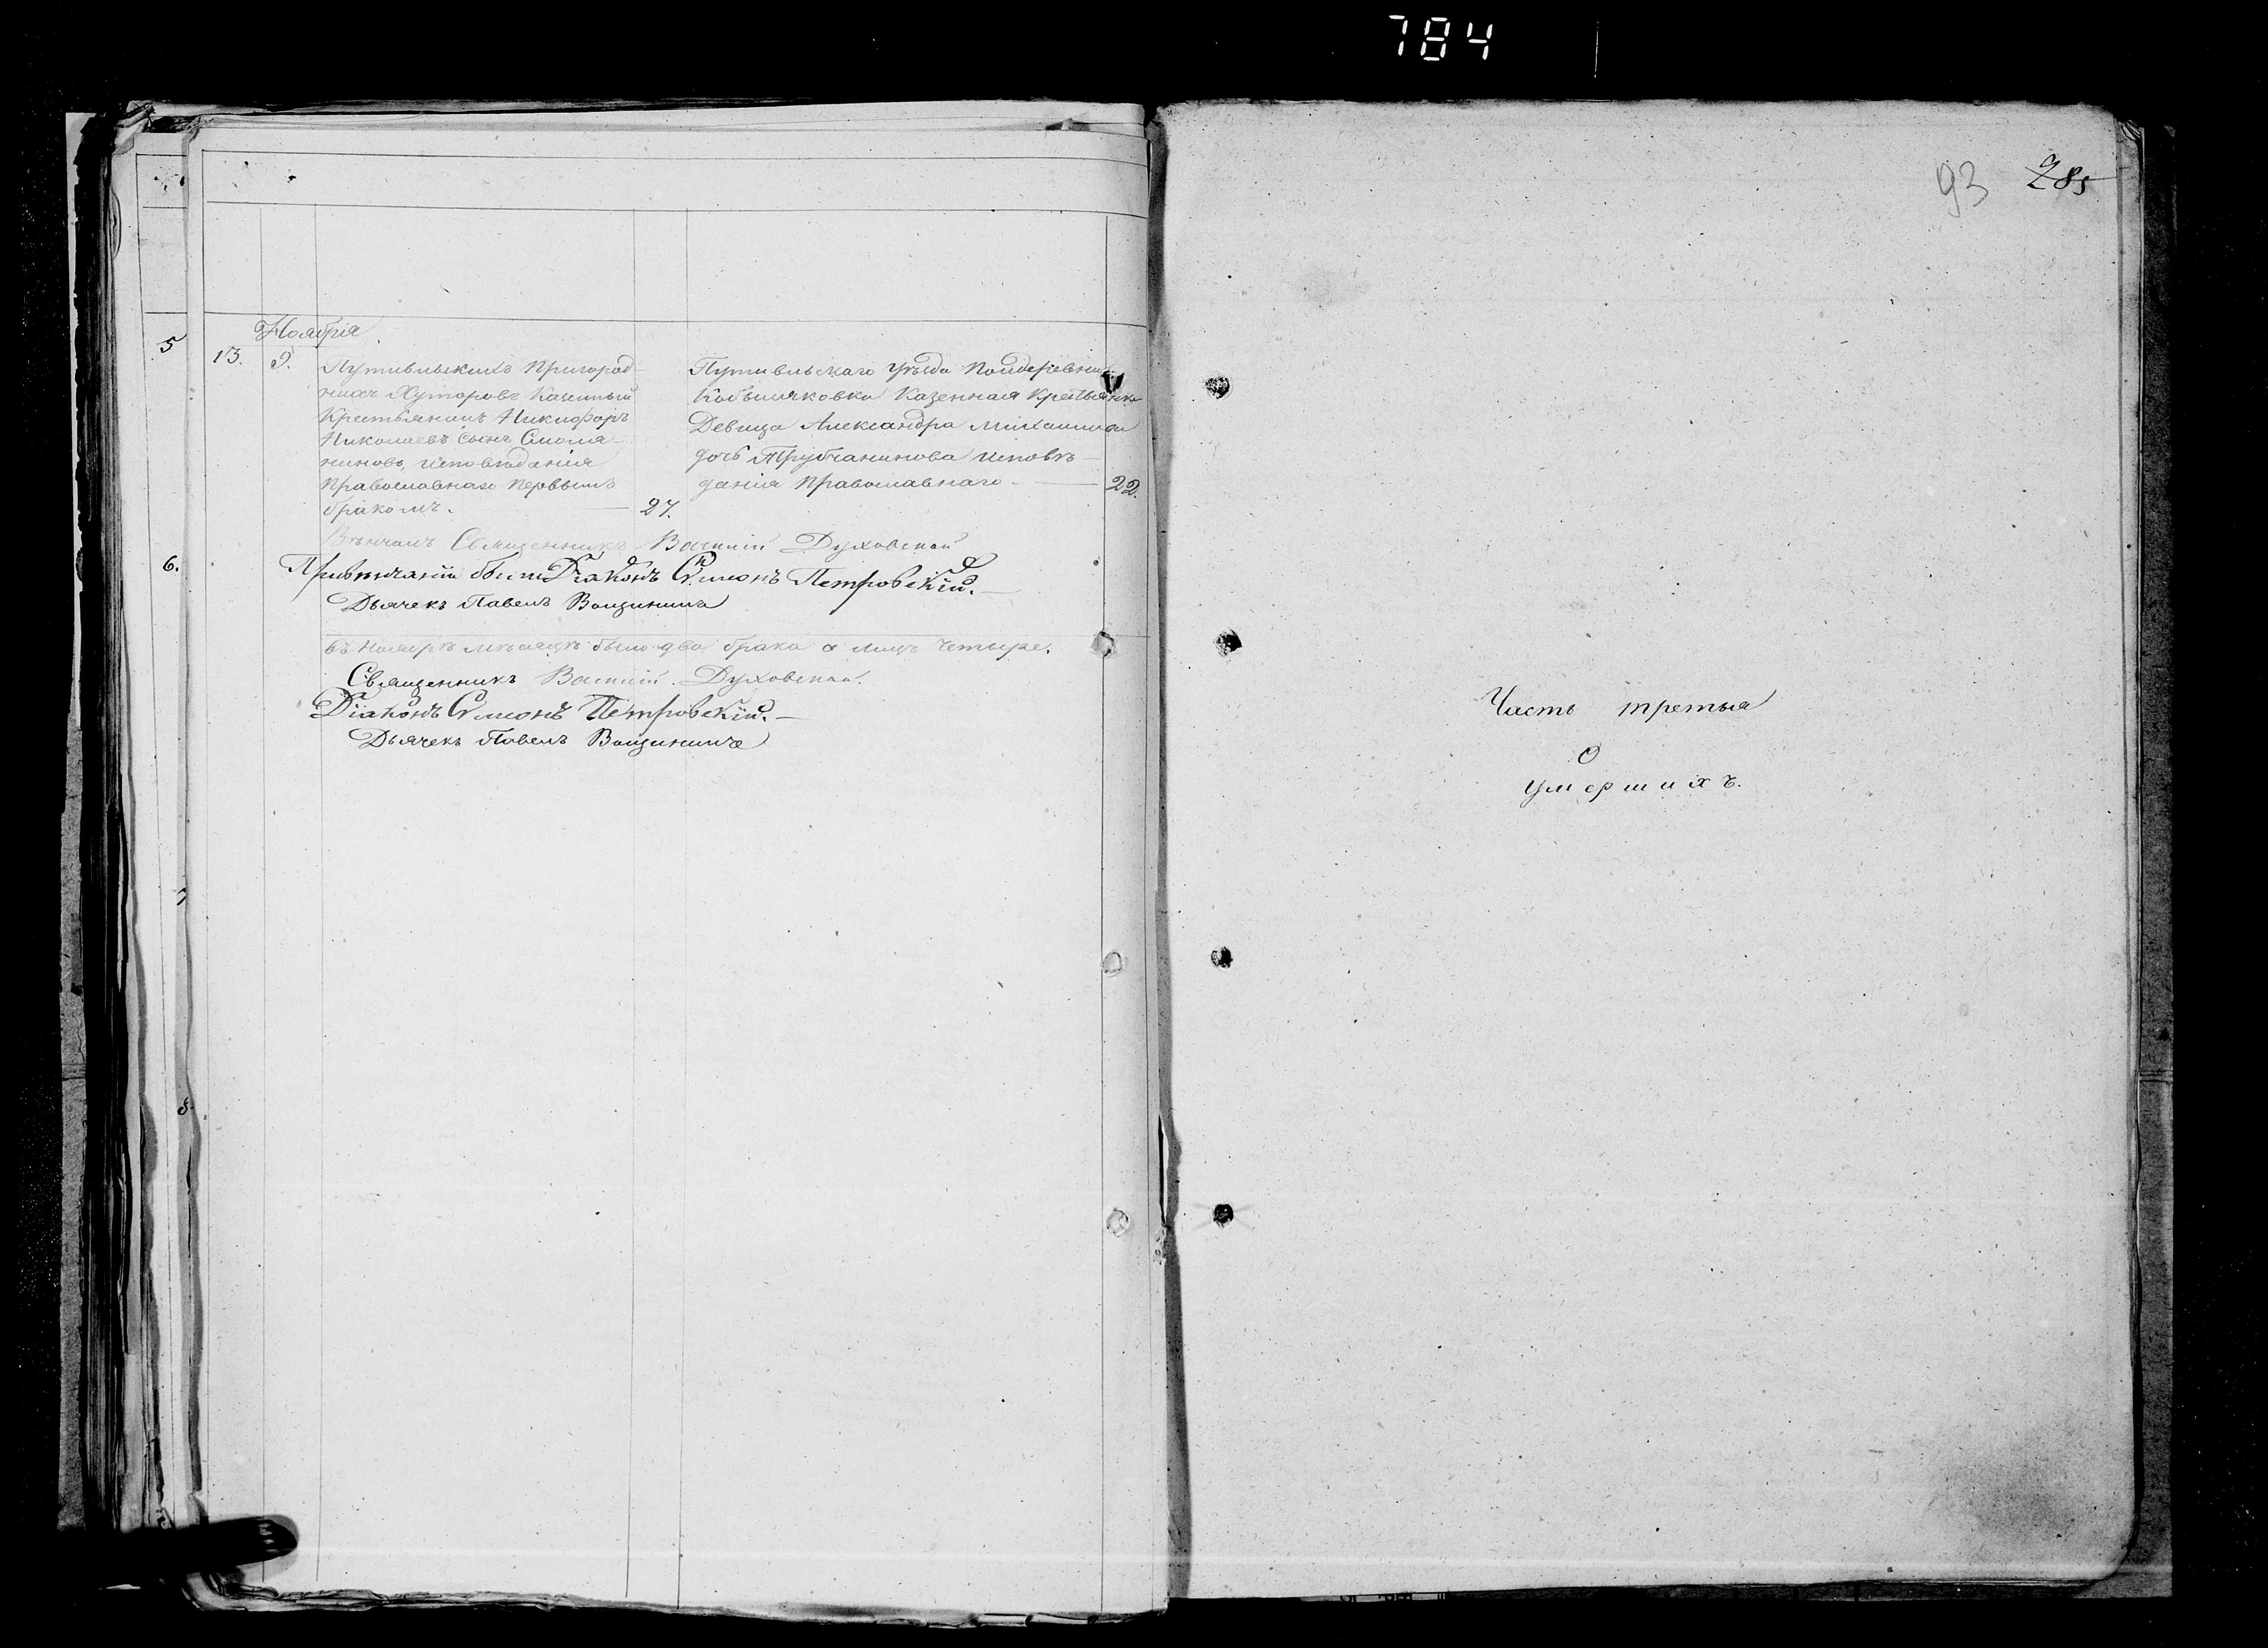 784
93 285
5
6.
7
8
Ноября
13. 9. Путивльскихъ пригород-
нихъ Хуторовъ Казенный
Крестьянинъ Никифоръ
Николаевъ сынъ Смоля-
ниновъ, исповѣданія
Православнаго первымъ
бракомъ. 27.
Путивльскаго уѣзда
Казенная Крестьянка
Девица Александра Михаилова
дочь Трубчанинова исповѣ-
данія Православнаго. 22.
Вѣнчалъ Священникъ Василій Духовской
При вѣнчаніи были Діаконъ Сѵмеонъ Петровскій.
Дьячекъ Павелъ
Въ Ноябрѣ мѣсяцѣ было два брака а лицъ четыре.
Священникъ Василій Духовской.
Діаконъ Сѵмеонъ Петровскій.
Дьячекъ Павелъ
Часть третья
О
умершихъ.